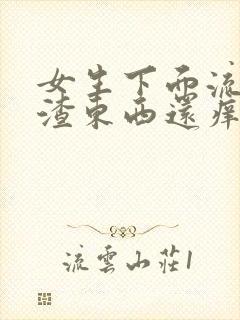 女生下面流
渣東西還痒
流雲山莊1